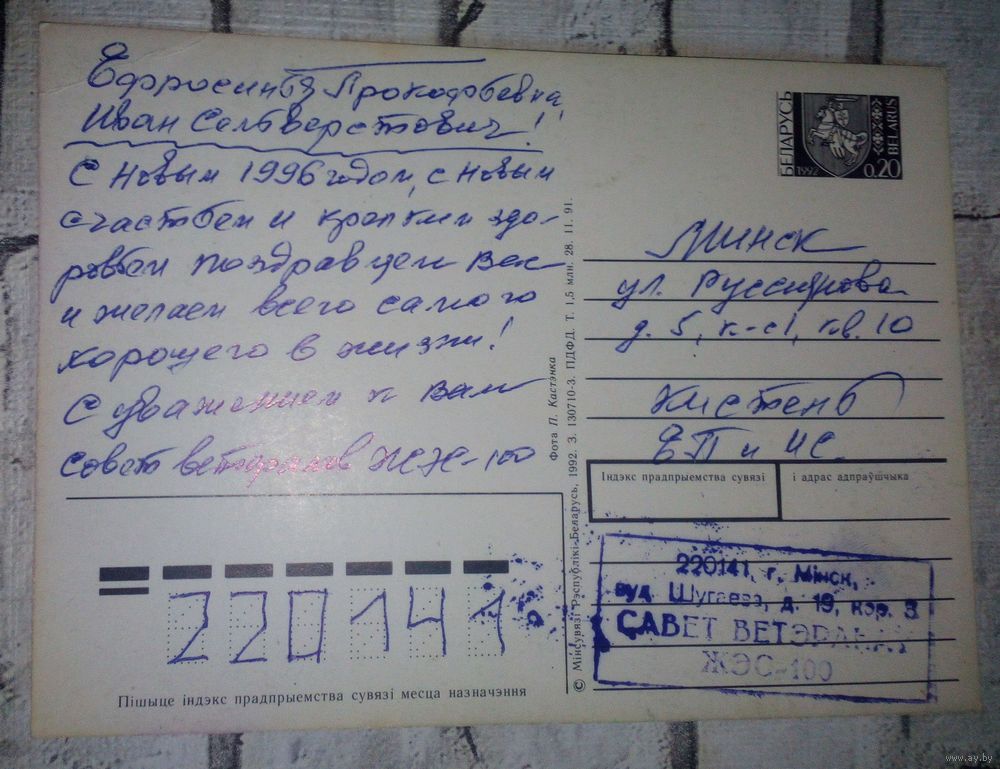 Ефросинья Прокофьевна,
Иван Сельверстович!
С Новым 1996 годом, с новым
счастьем и крепким здо-
ровьем поздравляем Вас
и желаем всего самого
хорошего в жизни!
С уважением к Вам
Совет ветеранов ЖЭС-100
БЕЛАРУСЬ
1992
0,20
BELARUS
Минск
ул. Руссиянова
д. 5, к-с1, кв. 10
Кистень
ЕП и ИС.
Індэкс прадпрыемства сувязі
і адрас адпраўшчыка
220141, г. Мінск,
вуд. Шугаева, д. 19, кор. 3
САВЕТ ВЕТЭРАНАЎ
ЖЭС-100
220141
Пішыце індэкс прадпрыемства сувязі месца назначэння
Фота П. Кастэнка
© Мінсувязі Рэспублікі Беларусь, 1992. З. 130710-3. ПДФД. Т. 1,5 млн. 28. 11. 91.
www.ay.by